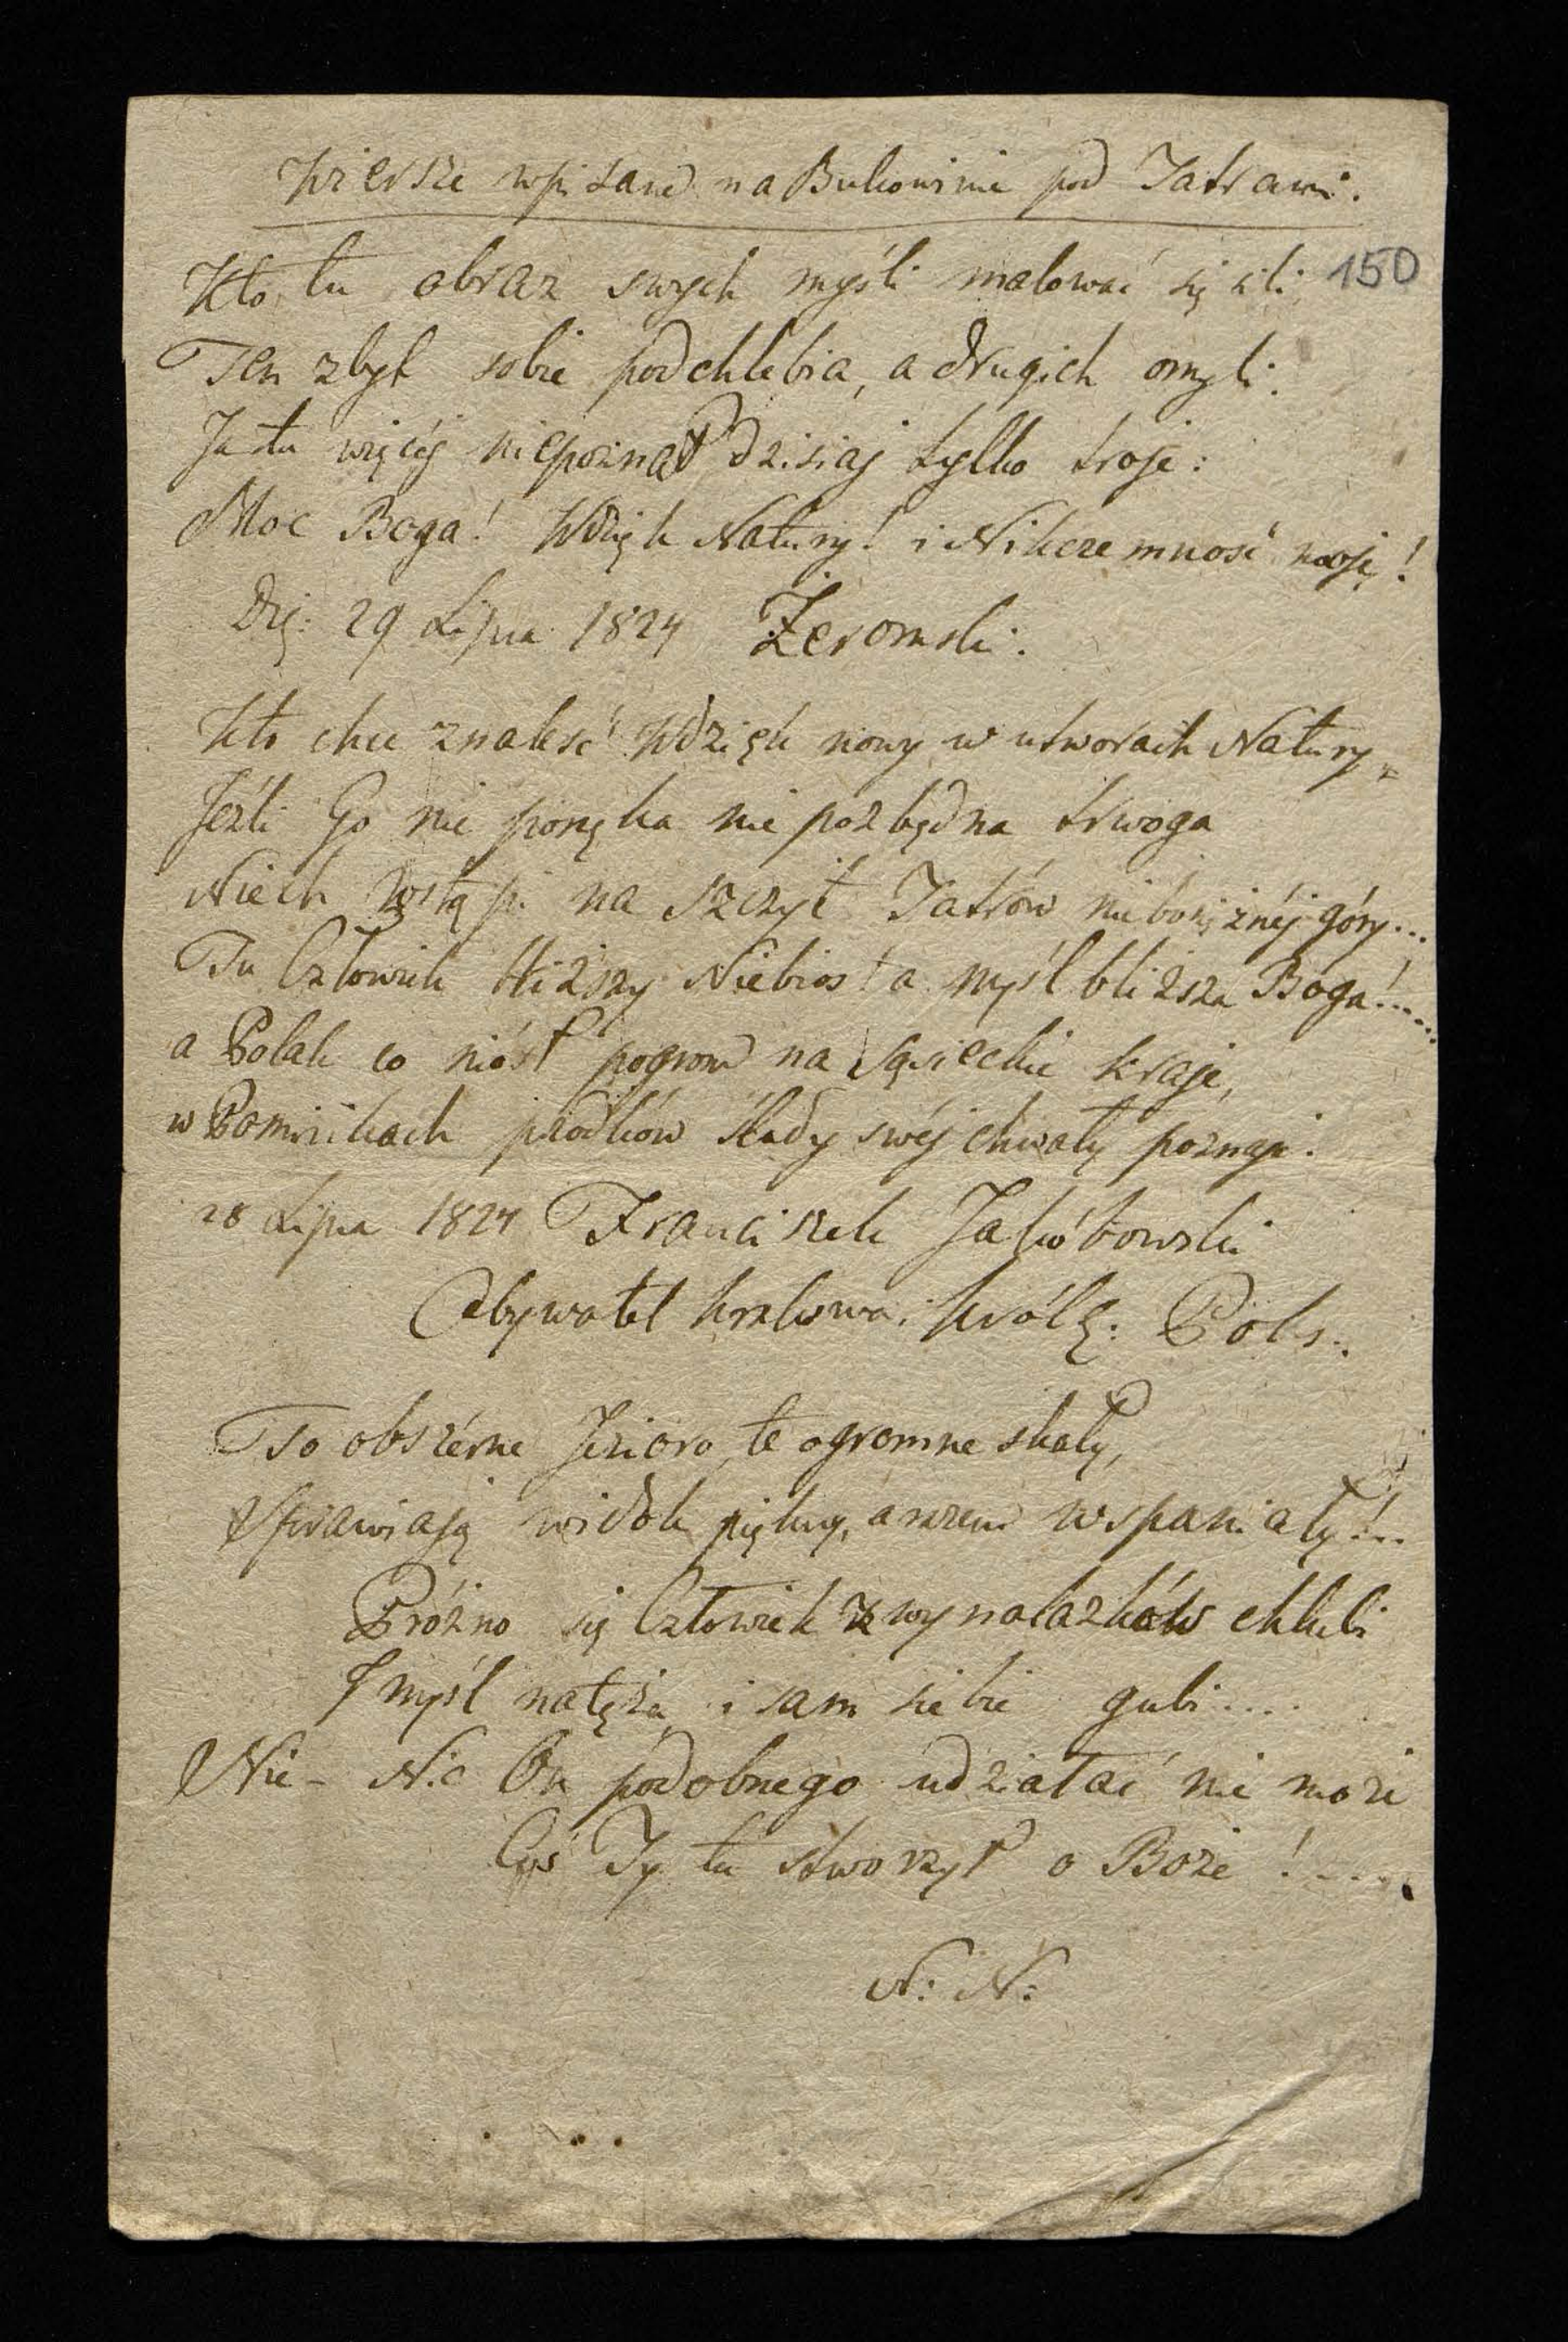 Wiersze wpisane na Bukowinie pod Tatrami.
150
Kto tu obraz swych myśli malować się sili
Ten zbyt sobie podchlebia, a drugich omyli.
Ja tu więcéj niepoznał dzisiaj tylko troje:
Moc Boga! Wdzięk Natury! i Nikczemność moję!
29 Lipca 1824 Żeromski.
Kto chce znaleść Wdzięk nowy w utworach Natury,
Jeźli Go nie ponęka nie pozbędna trwoga
Niech wstąpi na szczyt Tatrów niebotyżnéj góry...
Tu Człowiek bliższy Niebios! a myśl bliższa Boga!.....
a Polak co niósł pogrom na sąsieckie kraje,
w Pomnikach przodków ślady swéj chwały poznaje.
28 Lipca 1824 Franciszek Jakóbowski
Obywatel Krakowa i Król: Pols:.
To obszérne Jezioro, te ogromne skały,
Sprawiają widok piękny, a razem wspaniały!...
Próżno się Człowiek z wynalazków chlubi
Myśl natęża, i sam siebie gubi....
Nie - Nic On podobnego udziałać nie może
Coś Ty tu stworzył o Boże!.....
N: N: